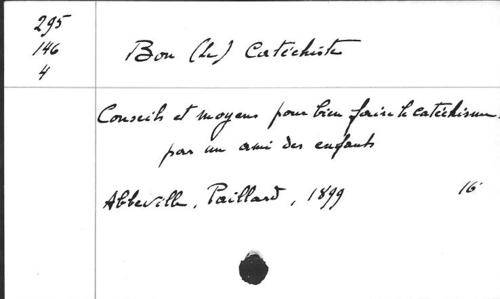 295
146
4
Bon (Le) Catéchiste
Conseils et moyens pour bien faire le catéchisme.
par un ami des enfants
Abbeville, Paillard, 1899 16°